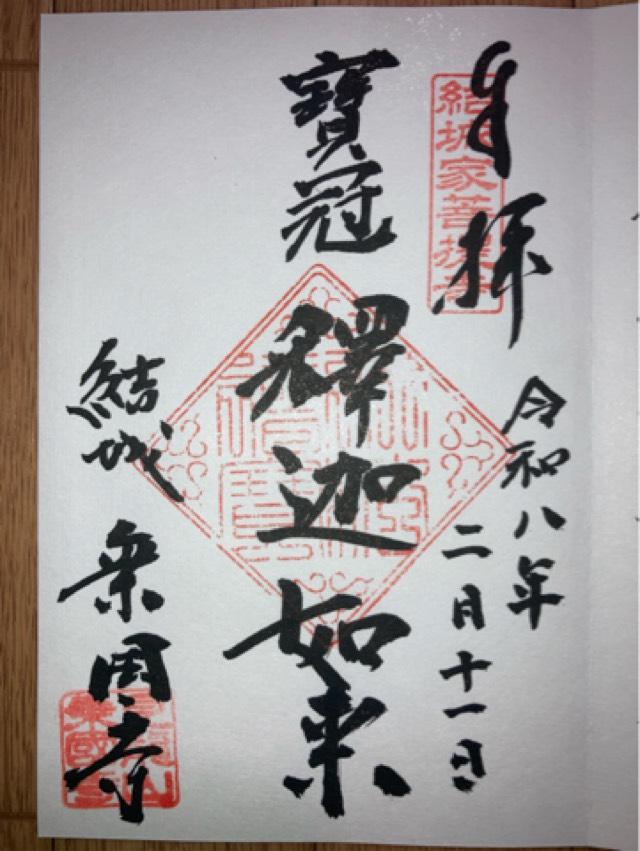 奉拝
結城家菩提寺
令和八年
二月十一日
寶冠
釋迦如来
結城
乗国寺